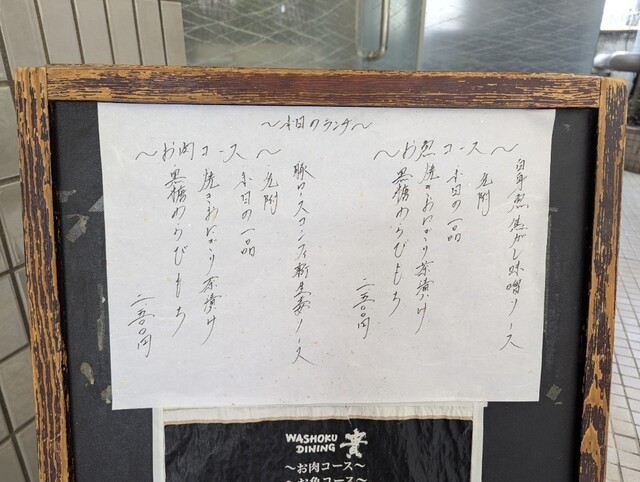 〜本日のランチ〜
〜お魚コース〜
先附
白身魚焦がし味噌ソース
本日の一品
焼きおにぎり茶漬け
黒糖わらびもち
二五〇〇円
〜お肉コース〜
先附
豚ロースコンフィ新生姜ソース
本日の一品
焼きおにぎり茶漬け
黒糖わらびもち
二五〇〇円
WASHOKU
DINING 貴
〜お肉コース〜
〜お魚コース〜